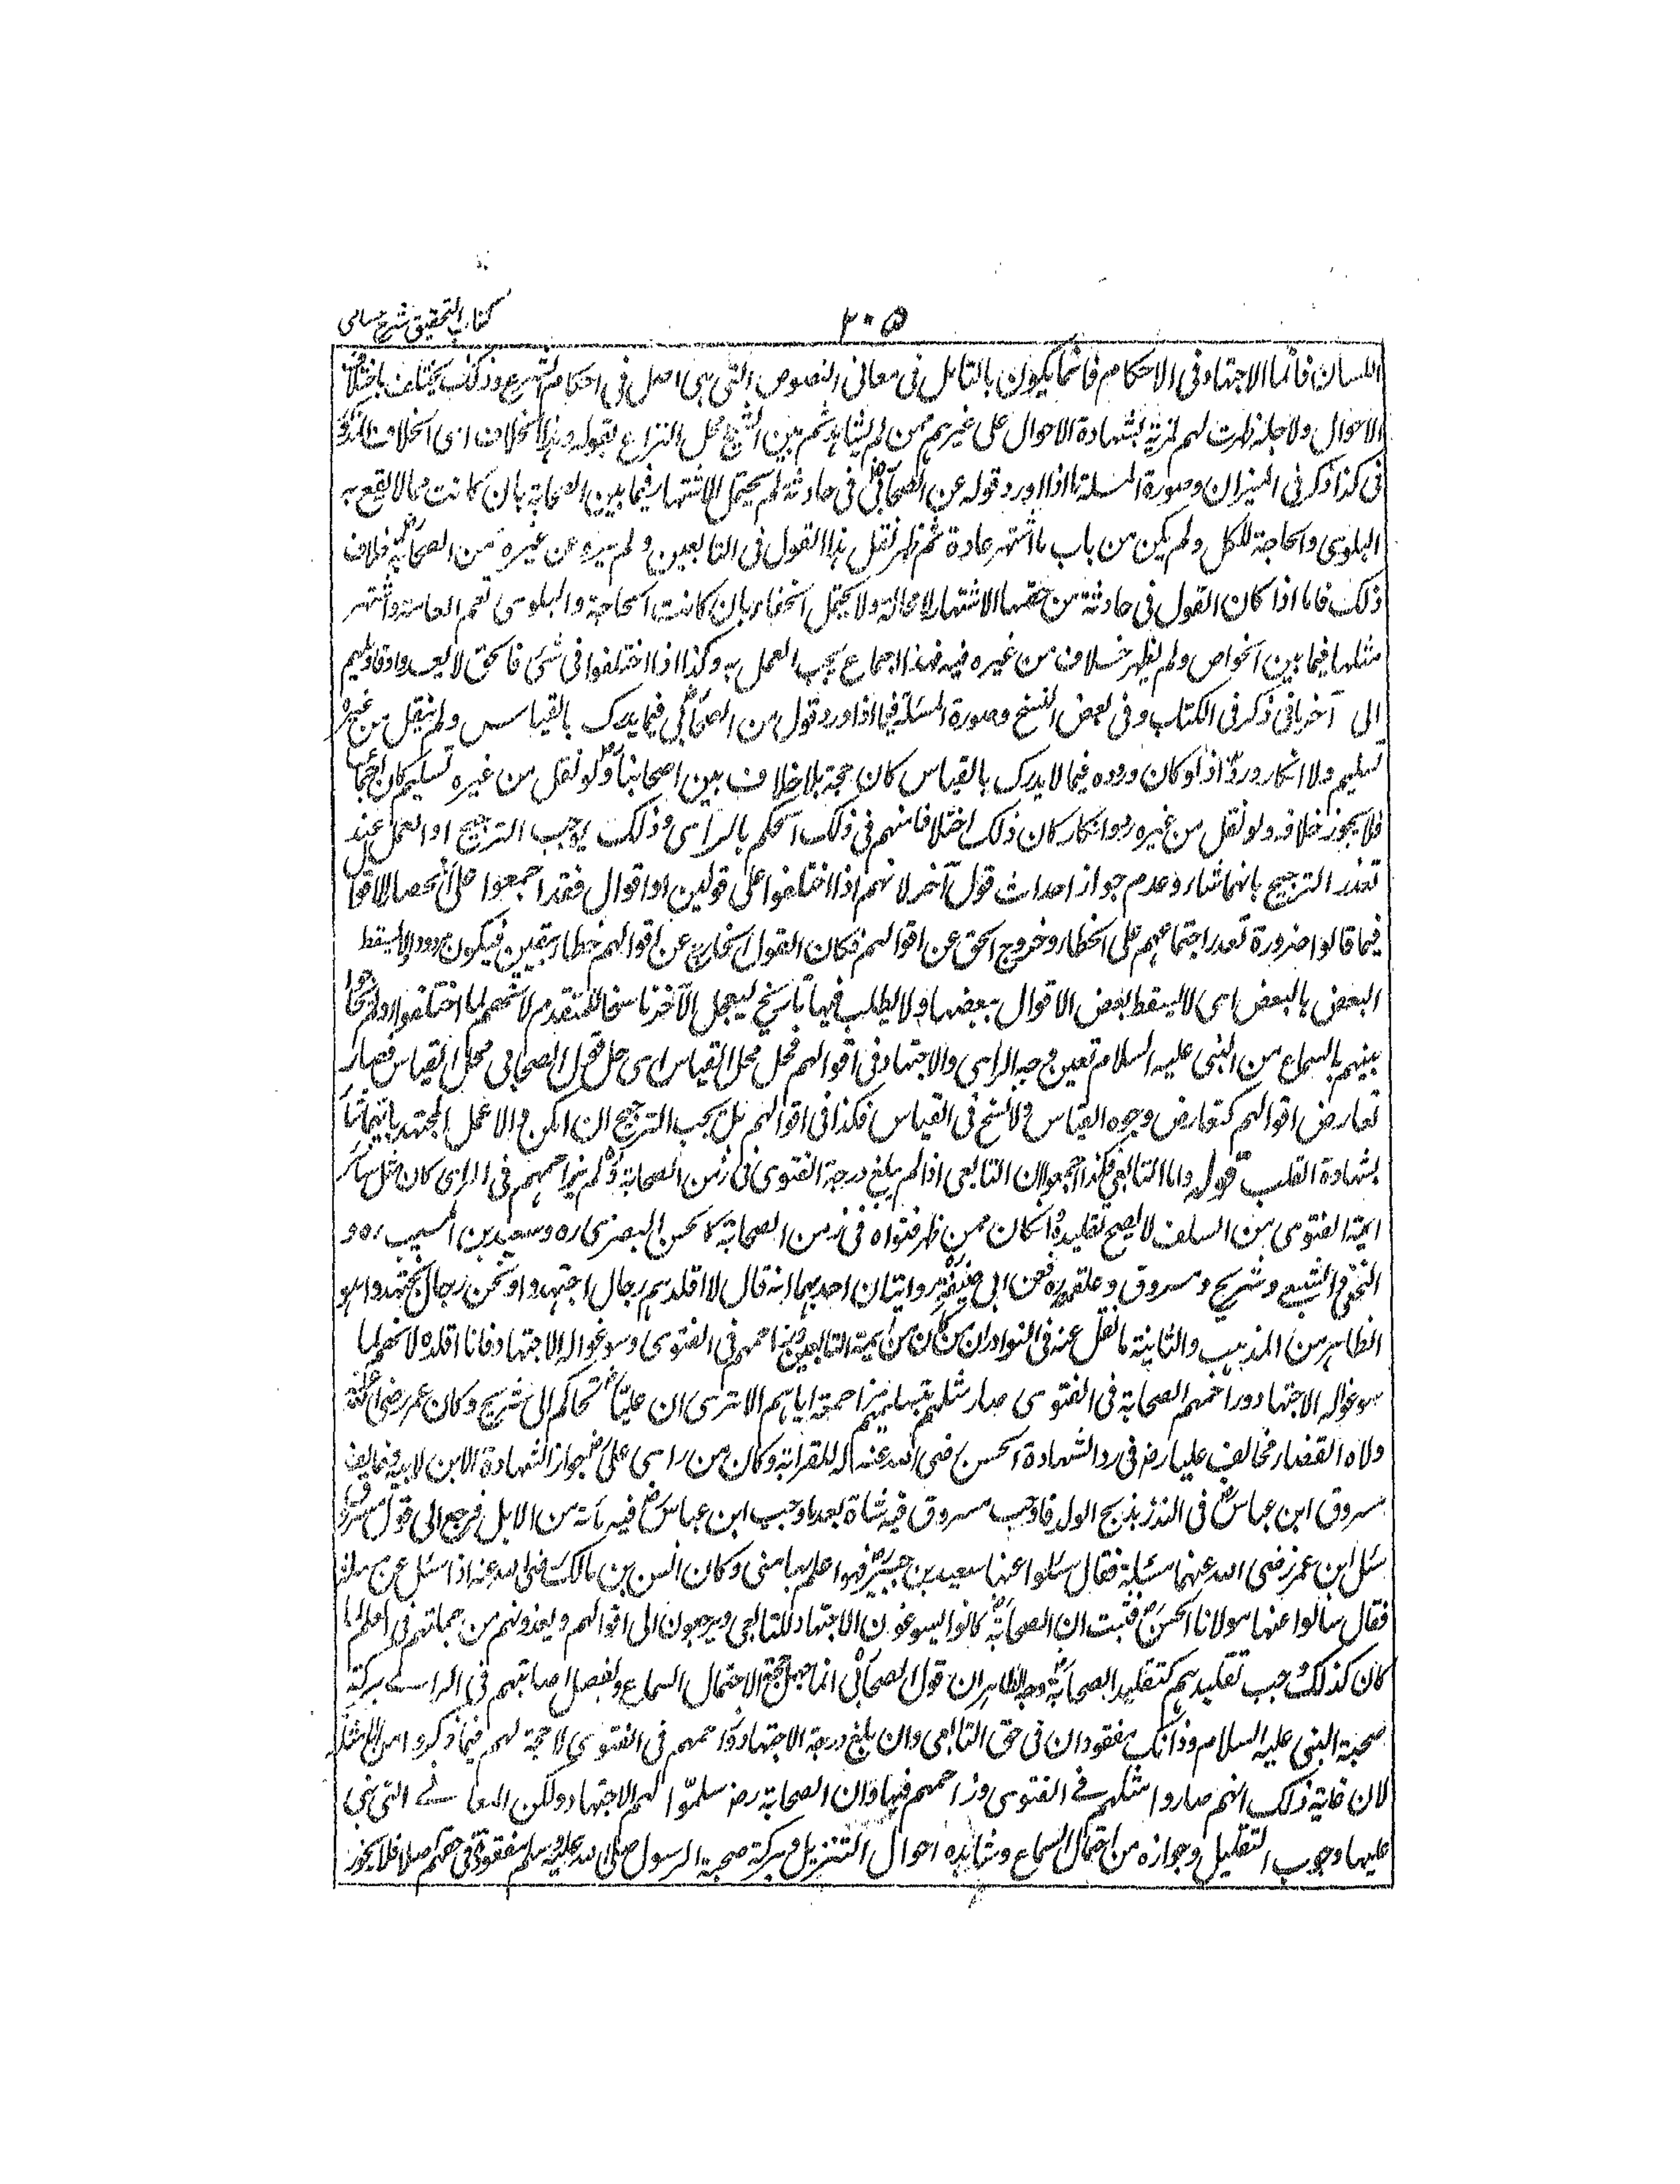 كتاب التحقيق شرح حسامى
٢٠٥
اللسان فاما الاجتهاد فى الاحكام فانما يكون بالتامل فى معانى النصوص التى هى اصل فى احكام الشرع وذلك يختلف باختلاف
الاحوال ولاجله ظهرت لهم مزية بشهادة الاحوال على غيرهم ممن لم يشاهد ثم بين الشيخ محل النزاع بقوله وهذا الخلاف اى الخلاف المذكور
فى كذا ذكر فى الميزان وصورة المسئلة ما اذا ورد قوله عن الصحابى فى حادثة لم يحتمل الاشتهار فيما بين الصحابة بان كانت مما لا يقع به
البلوى والحاجة للكل ولم يكن من باب ما اشتهر عادة ثم ظهر نقل هذا القول فى التابعين ولم يرو عن غيره من الصحابة خلاف
ذلك فاما اذا كان القول فى حادثة من حقها الاشتهار لا محالة ولا يحتمل الخفاء بان كانت الحاجة والبلوى تعم العامة واشتهر
مثلها فيما بين الخواص ولم يظهر خلاف من غيره فيه فهذا اجماع يجب العمل به وكذا اذا اختلفوا فى شئ فالحق لا يعدوا اقاويلهم
الى آخر ما فى ذكر فى الكتاب وفى بعض النسخ وصورة المسئلة فيما اذا ورد قول من الصحابى فيما يدرك بالقياس ولم ينقل من غيره
تسليم ولا انكار ورد اذ لو كان وروده فيما لا يدرك بالقياس كان حجة بلا خلاف بين اصحابنا ولو نقل من غيره تسليم كان اجماعا
فلا يجوز خلافه ولو نقل من غيره رد وانكار كان ذلك اختلافا منهم فى ذلك الحكم بالراى وذلك يوجب الترجيح او العمل عند
تعذر الترجيح بايهما شاء وعدم جواز احداث قول آخر لانهم اذا اختلفوا على قولين او اقوال فقد اجمعوا على انحصار الاقوال
فيما قالوا ضرورة تعذر اجتماعهم على الخطاء وخروج الحق عن اقوالهم فكان القول الخارج عن اقوالهم خطاء بيقين فيكون مردودا ولا يسقط
البعض بالبعض اى لا يسقط بعض الاقوال ببعضها ولا يطلب فيها تاريخ ليجعل الآخر ناسخا للمتقدم لانهم لما اختلفوا ولم يتحاجوا
بينهم بالسماع من النبى عليه السلام تعين وجه الراى والاجتهاد فى اقوالهم فحل محل القياس اى حل قول الصحابى محل القياس فصار
تعارض اقوالهم كتعارض وجوه القياس ولا نسخ فى القياس فكذا فى اقوالهم بل يجب الترجيح ان امكن والا عمل المجتهد بايهما شاء
بشهادة القلب قوله واما التابعى فكذا اجمعوا ان التابعى اذا لم يبلغ درجة الفتوى فى زمن الصحابة ولم يزاحمهم فى الراى كان مثل سائر
ايمة الفتوى من السلف لا يصح تقليده وان كان ممن ظهر فتواه فى زمن الصحابة كالحسن البصرى ره وسعيد بن المسيب ره و
النخعى والشعبى وشريح ومسروق وعلقمة ره فعن ابى حنيفة روايتان احدهما انه قال لا اقلدهم هم رجال اجتهدوا ونحن رجال نجتهد وهو
الظاهر من المذهب والثانية ما نقل عنه فى النوادر ان من كان من ايمة التابعين وزاحمهم فى الفتوى وسوغوا له الاجتهاد فانا اقلده لانهم لما
سوغوا له الاجتهاد وزاحمهم الصحابة فى الفتوى صار مثلهم بتسليمهم مزاحمته اياهم الا ترى ان عليا تحاكم الى شريح وكان عمر رضى الله عنه
ولاه القضاء فخالف عليا رض فى رد الشهادة الحسن رضى الله عنه له للقرابة وكان من راى على جواز الشهادة الابن لابيه وخالف
مسروق ابن عباس فى النذر بذبح الولد فاوجب مسروق فيه شاة بعد ما وجب ابن عباس فيه مائة من الابل فرجع الى قول مسروق
سئل ابن عمر رضى الله عنهما مسئلة فقال سئلوا عنها سعيد بن جبير فهو اعلم بها منى وكان انس بن مالك رضى الله عنه اذا سئل عن مسئلة
فقال سالوا عنها مولانا الحسن فثبت ان الصحابة كانوا يسوغون الاجتهاد للتابعى ويرجعون الى اقوالهم ويعدونهم من جملتهم فى العلم لما
كان كذلك وجب تقليدهم كتقليد الصحابة وجه الظاهر ان قول الصحابى انما جعل حجة لاحتمال السماع ولفضل اصابتهم فى الراى ببركة
صحبة النبى عليه السلام وذانك مفقودان فى حق التابعى وان بلغ درجة الاجتهاد وزاحمهم فى الفتوى لا حجة لهم فيما ذكروا من الامثلة
لان غاية ذلك انهم صاروا مثلهم فى الفتوى وزاحمهم فيها وان الصحابة رض سلموا لهم الاجتهاد ولكن المعانى التى بنى
عليها وجوب التقليد وجوازه من احتمال السماع ومشاهده احوال التنزيل وبركة صحبة الرسول صلى الله عليه وسلم مفقودة فى حقهم اصلا فلا يجوز